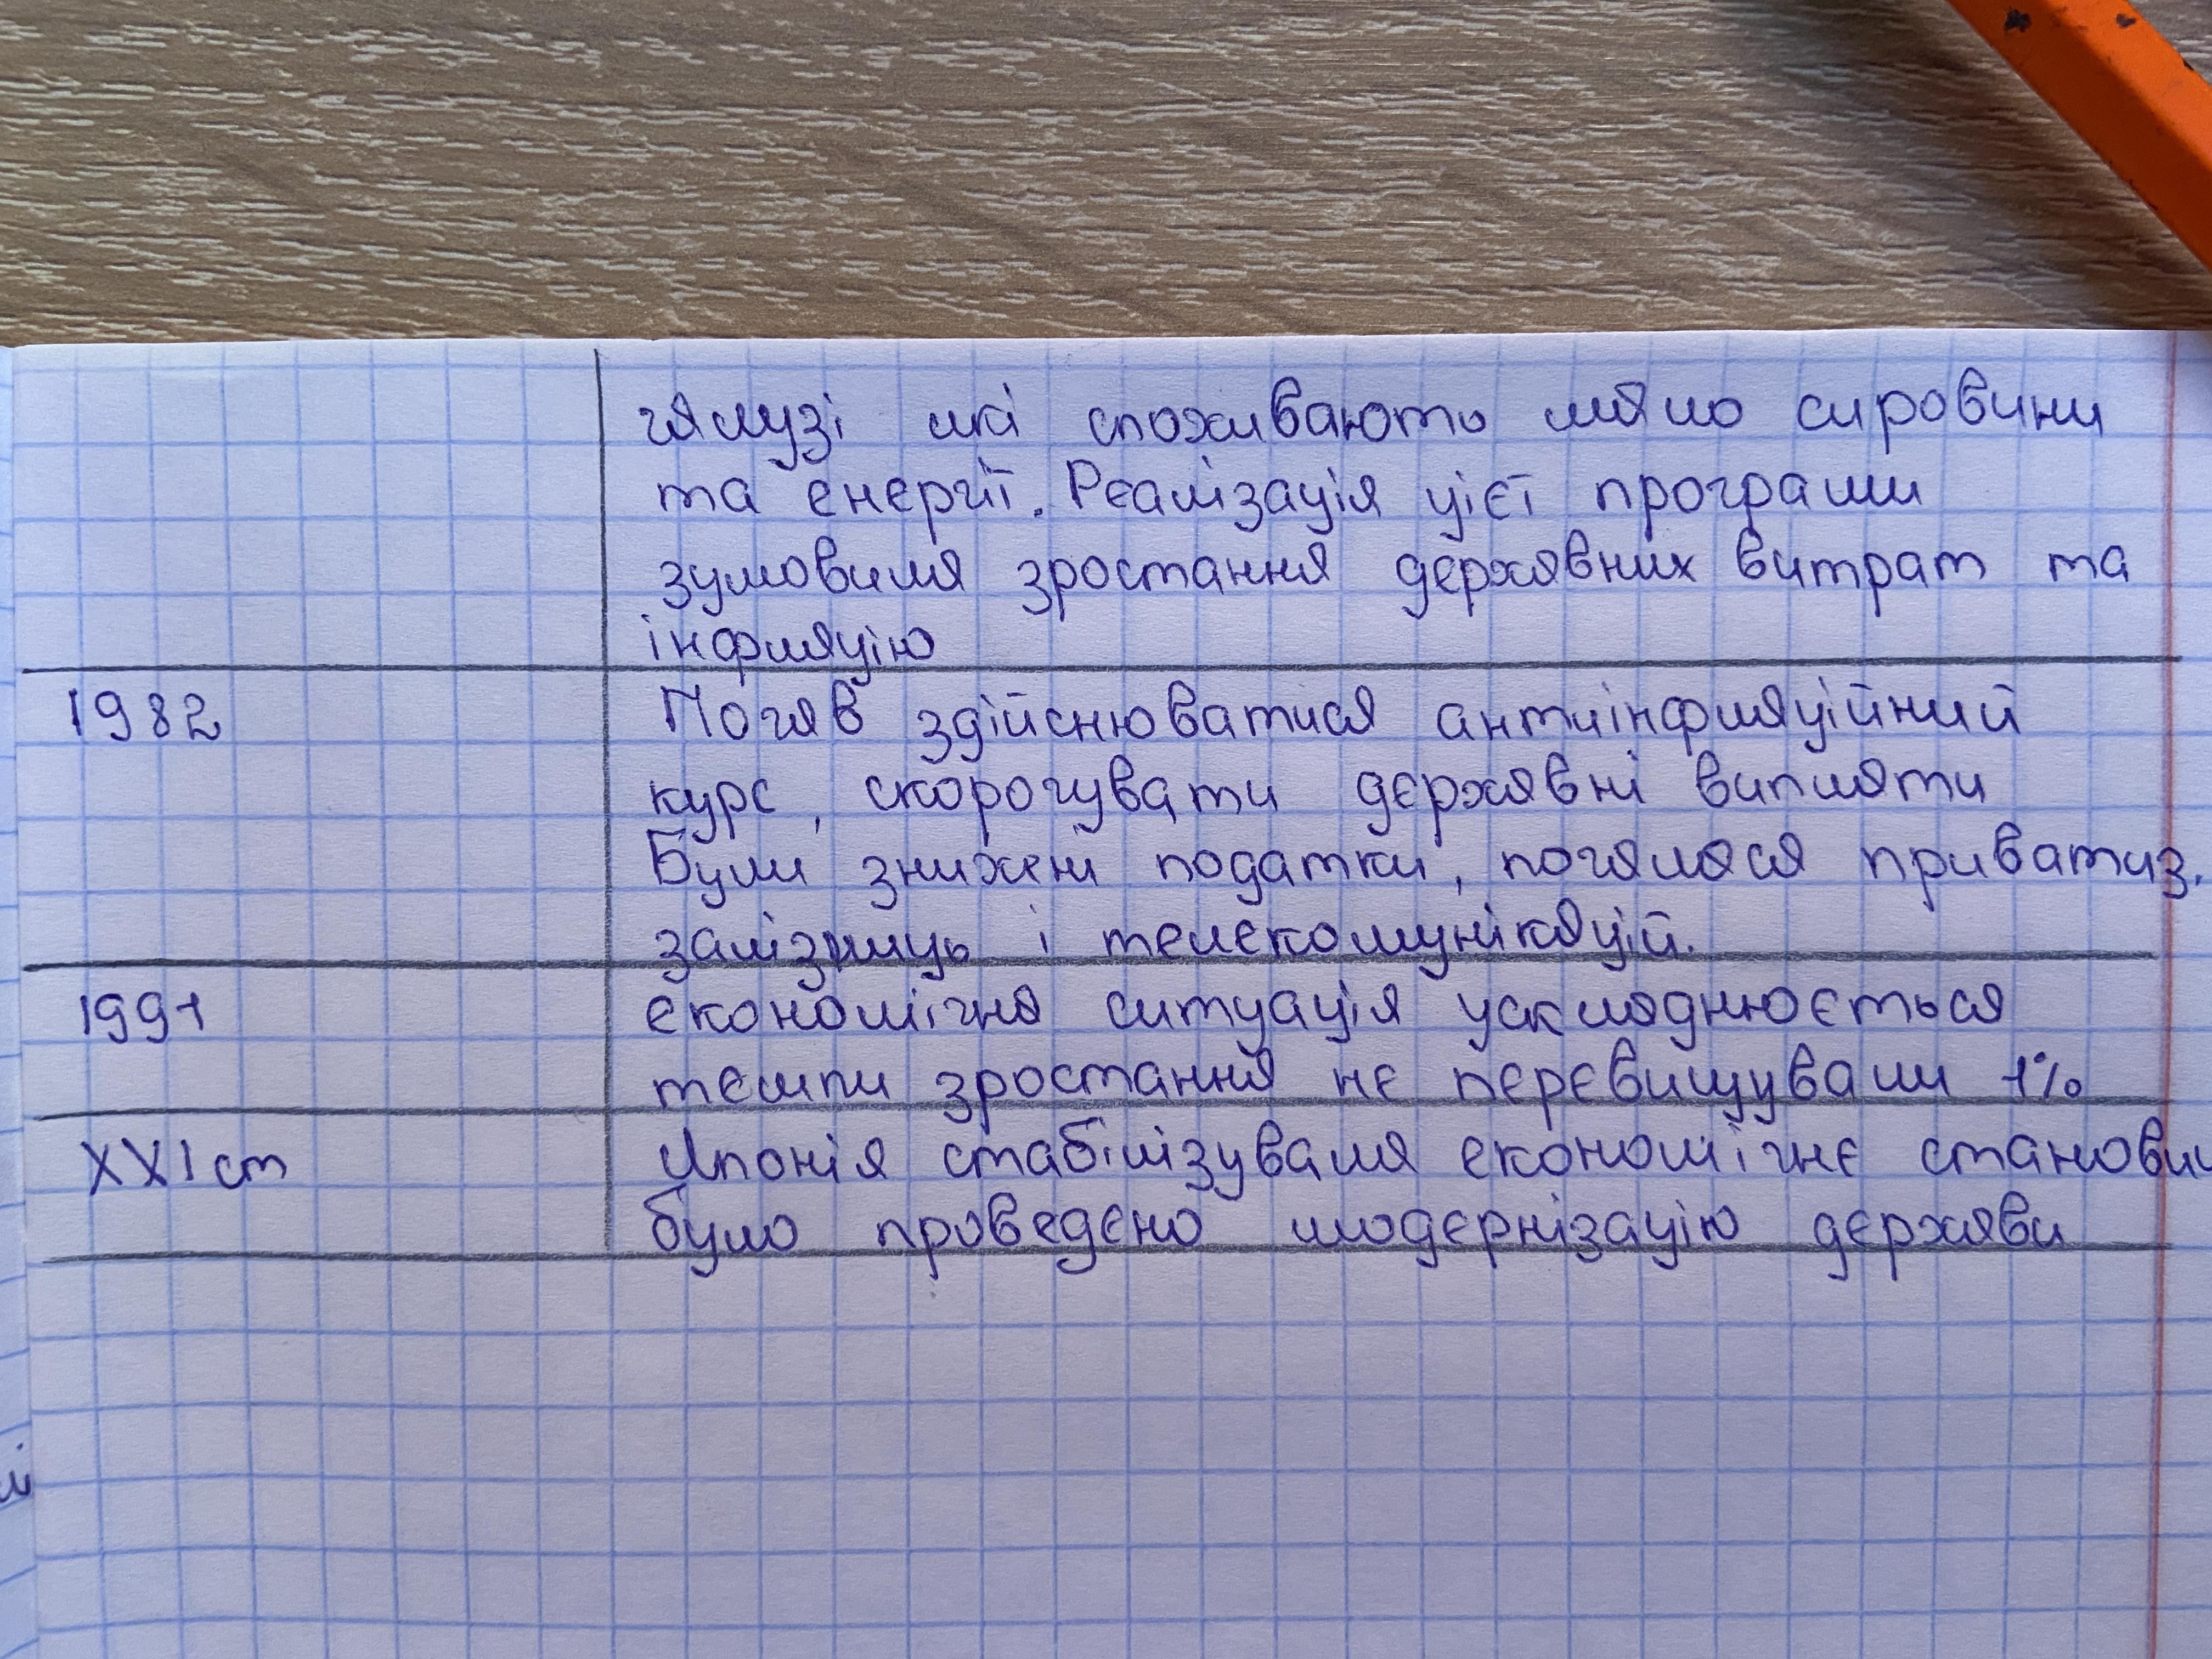 галузі які споживають мало сировини
та енергії. Реалізація цієї програми
зумовила зростання державних витрат та
інфляцію
1982 Почав здійснюватися антиінфляційний
курс, скорочувати державні виплати
Були знижені податки, почалася приватиз.
залізниць і телекомунікацій.
1991 економічна ситуація ускладнюється
темпи зростання не перевищували 1%
XXI ст Японія стабілізувала економічне станови
було проведено модернізацію держави